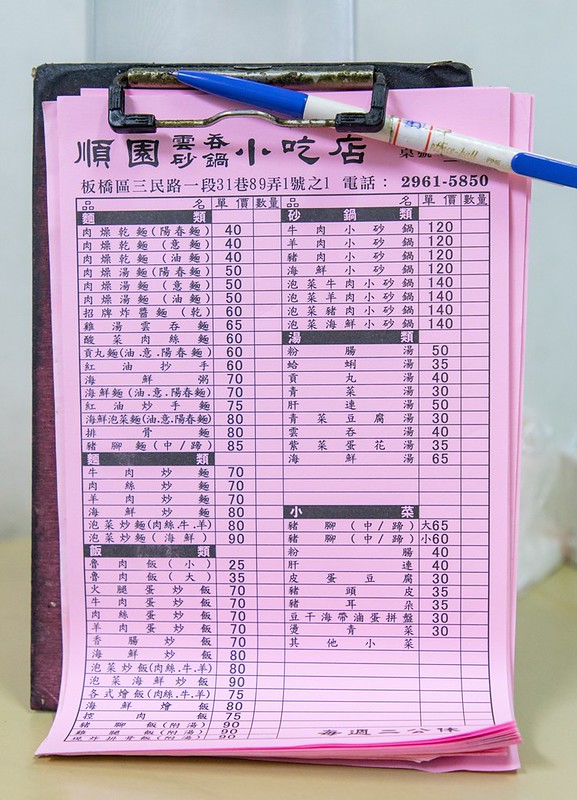 順園雲吞砂鍋小吃店
桌號
板橋區三民路一段31巷89弄1號之1 電話： 2961-5850
品名 單價 數量
麵類
肉燥乾麵(陽春麵) 40
肉燥乾麵(意麵) 40
肉燥乾麵(油麵) 40
肉燥湯麵(陽春麵) 50
肉燥湯麵(意麵) 50
肉燥湯麵(油麵) 50
招牌炸醬麵(乾) 60
雞湯雲吞麵 65
酸菜肉絲麵 60
貢丸麵(油.意.陽春麵) 60
紅油抄手 60
海鮮粥 70
海鮮麵(油.意.陽春麵) 70
紅油炒手麵 75
海鮮泡菜麵(油.意.陽春麵) 80
排骨麵 80
豬腳麵(中/蹄) 85
麵類
牛肉炒麵 70
肉絲炒麵 70
羊肉炒麵 70
海鮮炒麵 80
泡菜炒麵(肉絲.牛.羊) 80
泡菜炒麵(海鮮) 90
飯類
魯肉飯(小) 25
魯肉飯(大) 35
火腿蛋炒飯 70
牛肉蛋炒飯 70
肉絲蛋炒飯 70
羊肉蛋炒飯 70
香腸炒飯 70
海鮮炒飯 80
泡菜炒飯(肉絲.牛.羊) 80
泡菜海鮮炒飯 90
各式燴飯(肉絲.牛.羊) 75
海鮮燴飯 80
控肉飯 75
豬腳飯(附湯) 90
雞腿飯(附湯) 90
現炸排骨飯(附湯) 90
品名 單價 數量
砂鍋類
牛肉小砂鍋 120
羊肉小砂鍋 120
豬肉小砂鍋 120
海鮮小砂鍋 120
泡菜牛肉小砂鍋 140
泡菜羊肉小砂鍋 140
泡菜豬肉小砂鍋 140
泡菜海鮮小砂鍋 140
湯類
粉腸湯 50
蛤蜊湯 35
貢丸湯 40
青菜湯 30
肝連湯 50
青菜豆腐湯 30
雲吞湯 40
紫菜蛋花湯 35
海鮮湯 65
小菜
豬腳(中/蹄) 大65
豬腳(中/蹄) 小60
粉腸 40
肝連 40
皮蛋豆腐 30
豬頭皮 35
豬耳朵 35
豆干海帶滷蛋拼盤 30
燙青菜 30
其他小菜
每週二公休